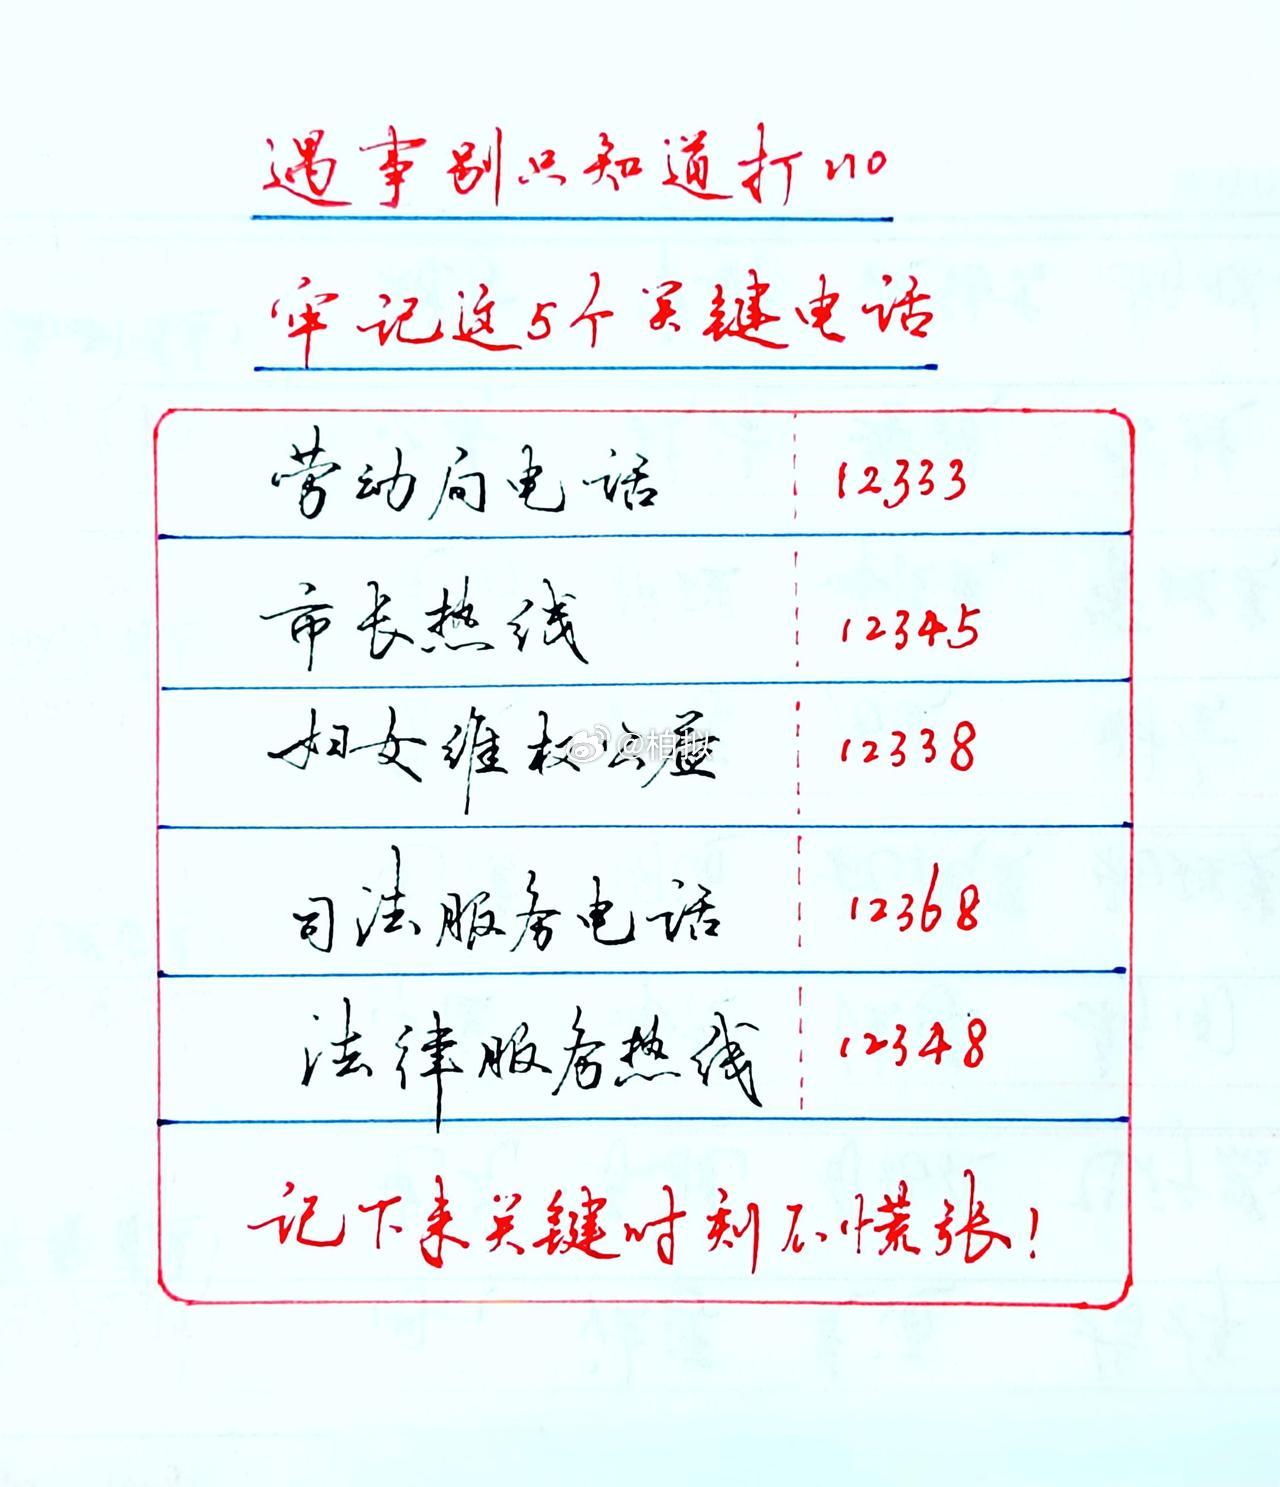 遇事别只知道打110
牢记这5个关键电话
劳动局电话 12333
市长热线 12345
妇女维权公益 12338
@柏拟
司法服务电话 12368
法律服务热线 12348
记下来关键时刻不慌张!